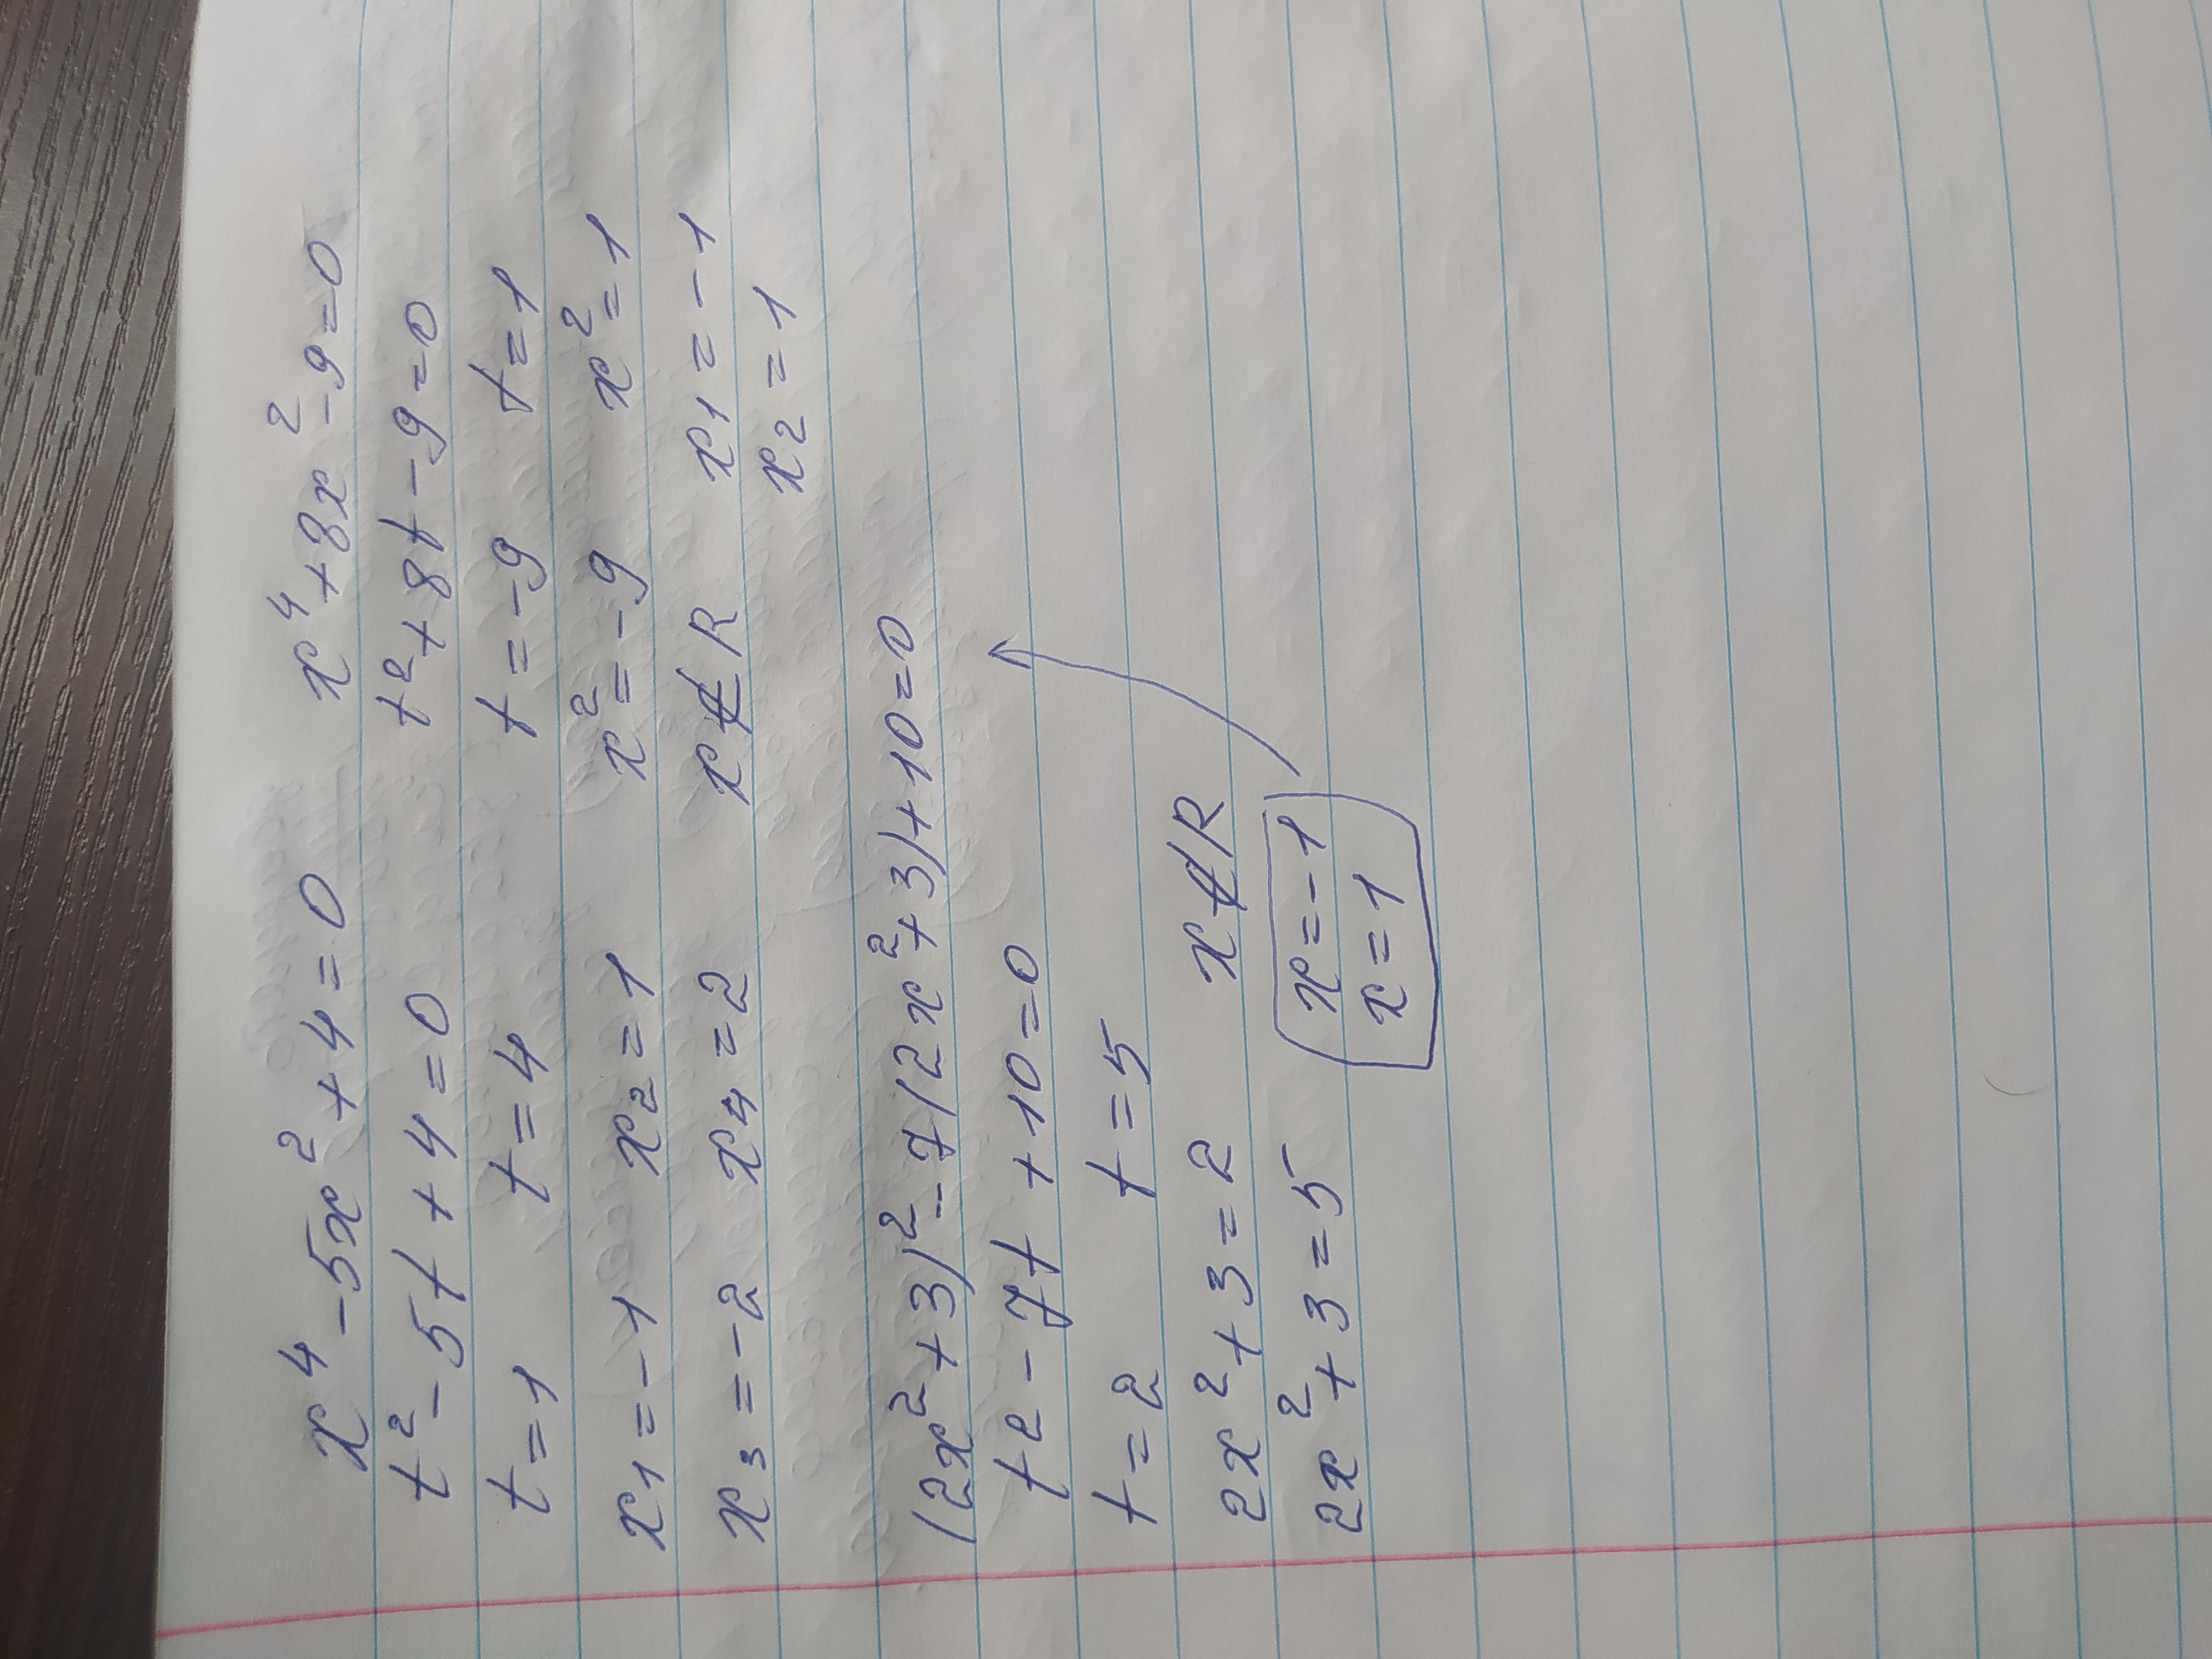 x⁴ - 5x² + 4 = 0
t² - 5t + 4 = 0
t = 1 t = 4
x₁ = -1 x₂ = 1
x₃ = -2 x₄ = 2
x⁴ + 8x² - 9 = 0
t² + 8t - 9 = 0
t = -9 t = 1
x² = -9 x² = 1
x ∉ R x₁ = -1
x₂ = 1
(2x² + 3)² - 7(2x² + 3) + 10 = 0
t² - 7t + 10 = 0
t = 2 t = 5
2x² + 3 = 2 x ∉ R
2x² + 3 = 5 x = -1
x = 1